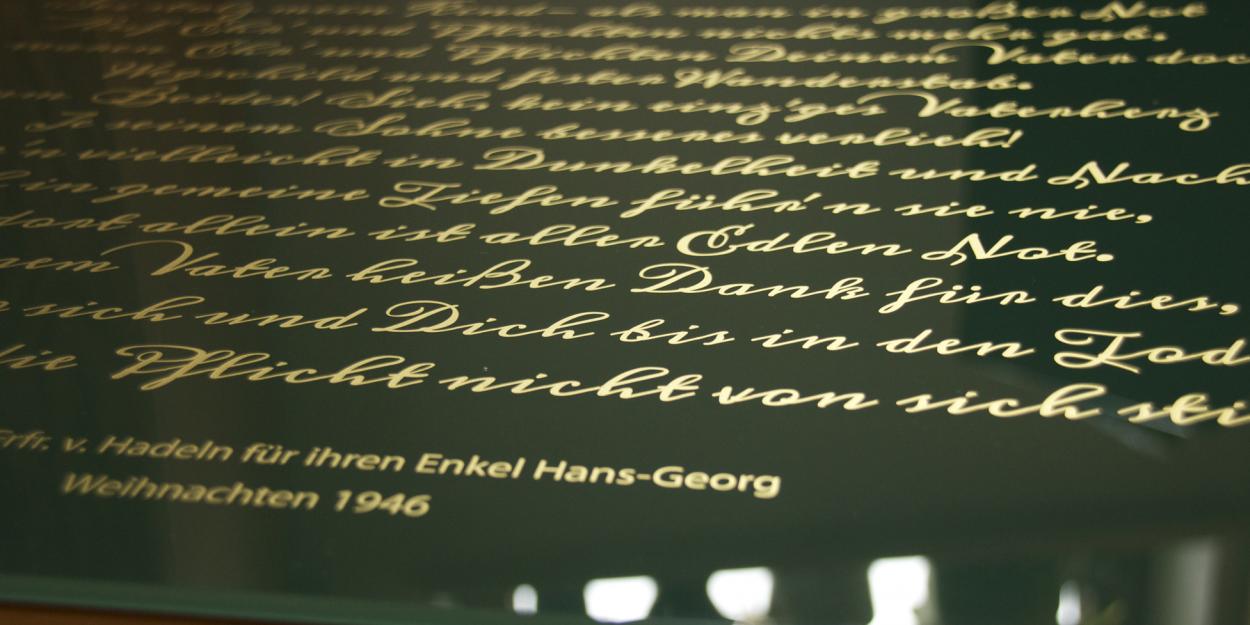 meinem Kind – als man in großen Not
Ehr' und Pflichten nichts mehr gab.
Ehr' und Pflichten Deinem Vater doch
Wegschild und fester Wanderstab.
Beides! Sieh, kein einz'ges Vaterherz
Je seinem Sohne besseres verlieh!
'n vielleicht in Dunkelheit und Nach
in gemeine Tiefen führ'n sie nie,
dort allein ist aller Edlen Not.
Vater heißen Dank für dies,
sich und Dich bis in den Tod
die Pflicht nicht von sich sti
Frfr. v. Hadeln für ihren Enkel Hans-Georg
Weihnachten 1946